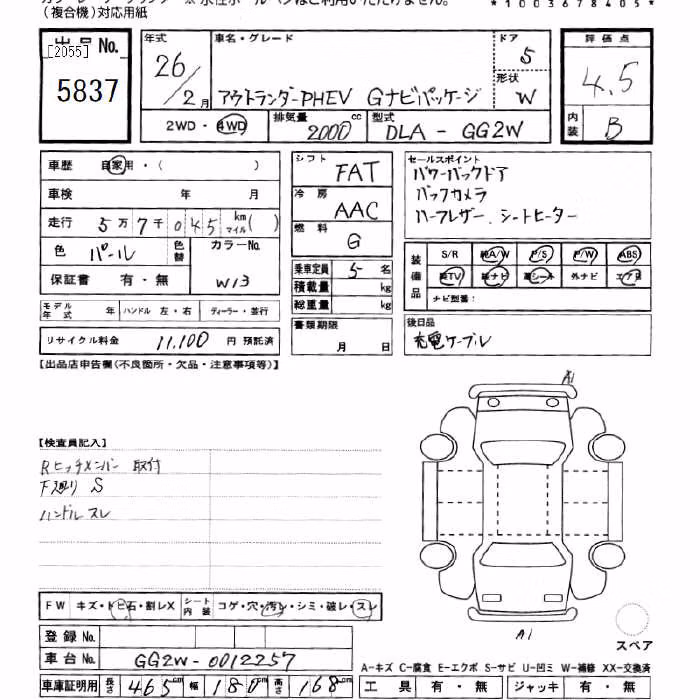 (複合機)対応用紙
*1003678405*
出品No.
[2055]
5837
年式
26/2月
車名・グレード
アウトランダーPHEV Gナビパッケージ
ドア
5
形状
W
2WD・4WD
排気量
2000cc
型式
DLA-GG2W
評価点
4.5
内装
B
車歴 自家用・( )
車検 年 月
走行 5万7千045 kmマイル( )
色 パール
色替
カラーNo.
W13
保証書 有・無
モデル年式 年
ハンドル 左・右
ディーラー・並行
リサイクル料金 11,100円 預託済
シフト
FAT
冷房
AAC
燃料
G
乗車定員 5名
積載量 kg
総重量 kg
書類期限
月 日
セールスポイント
パワーバックドア
バックカメラ
ハーフレザー、シートヒーター
装備品
S/R 純A/W P/S P/W ABS
純TV 純ナビ 革シート 外ナビ エアB
ナビ型番:
後日品
充電ケーブル
【出品店申告欄(不良箇所・欠品・注意事項等)】
【検査員記入】
Rヒッチメンバー 取付
下廻り S
ハンドル スレ
A1
A1
スペア
FW キズ・トビ石・割レX
シート内装 コゲ・穴・汚レ・シミ・破レ・スレ
登録No.
車台No. GG2W-0012257
車庫証明用 長さ 465cm 幅 180cm 高さ 168cm
A-キズ C-腐食 E-エクボ S-サビ U-凹ミ W-補修 XX-交換済
工具 有・無
ジャッキ 有・無